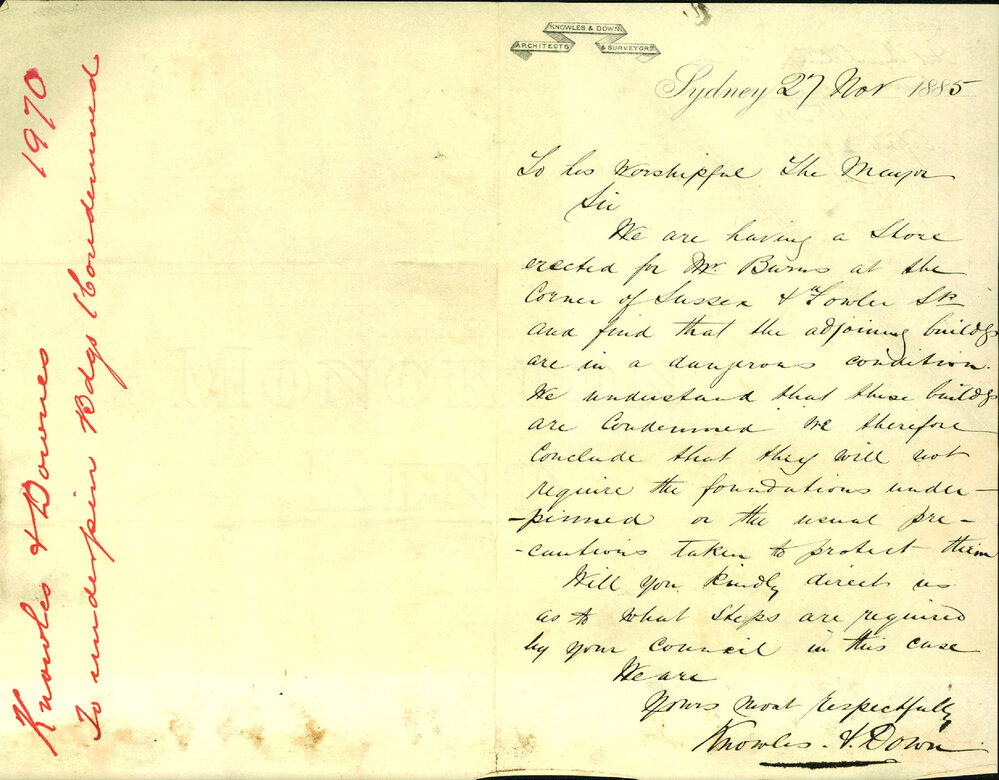 Knowles & Downes 1970
To underpin Bdgs Condemned
KNOWLES & DOWN.
ARCHITECTS & SURVEYORS
Sydney 27 Nov 1885
To his Worshipful The Mayor
Sir
We are having a Store
erected for Mr. Burns at the
Corner of Sussex & Fowler Sts
and find that the adjoining buildgs
are in a dangerous condition.
We understand that these buildgs
are Condemned we therefore
Conclude that they will not
require the foundations under-
-pinned or the usual pre-
-cautions taken to protect them
Will you kindly direct us
as to what steps are required
by your Council in this case
We are
Yours most respectfully
Knowles & Down